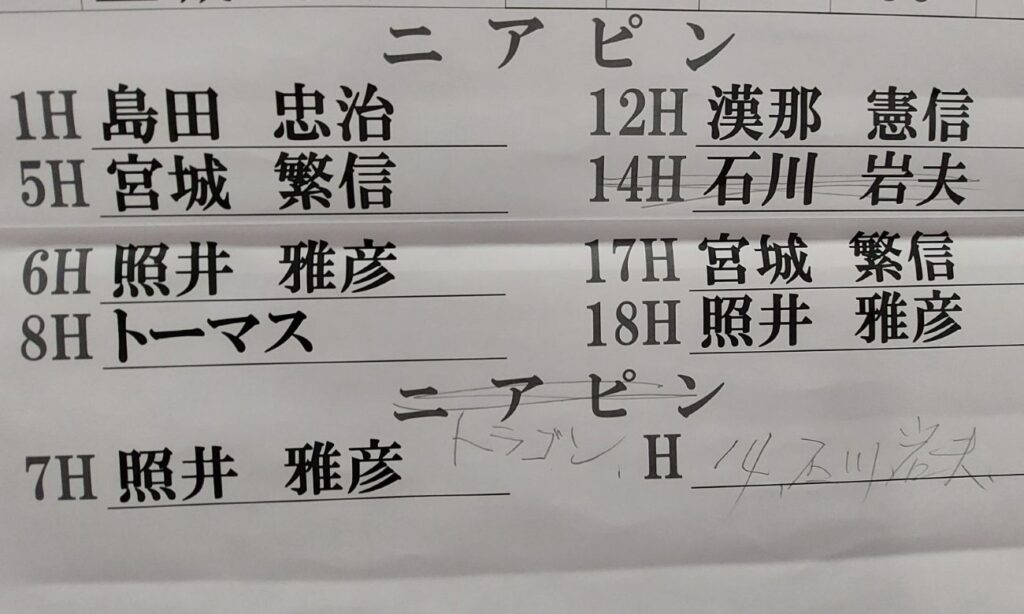 ニアピン
1H 島田 忠治 12H 漢那 憲信
5H 宮城 繁信 14H 石川 岩夫
6H 照井 雅彦 17H 宮城 繁信
8H トーマス 18H 照井 雅彦
ニアピン
トラゴン
7H 照井 雅彦 H 14. 石川岩夫